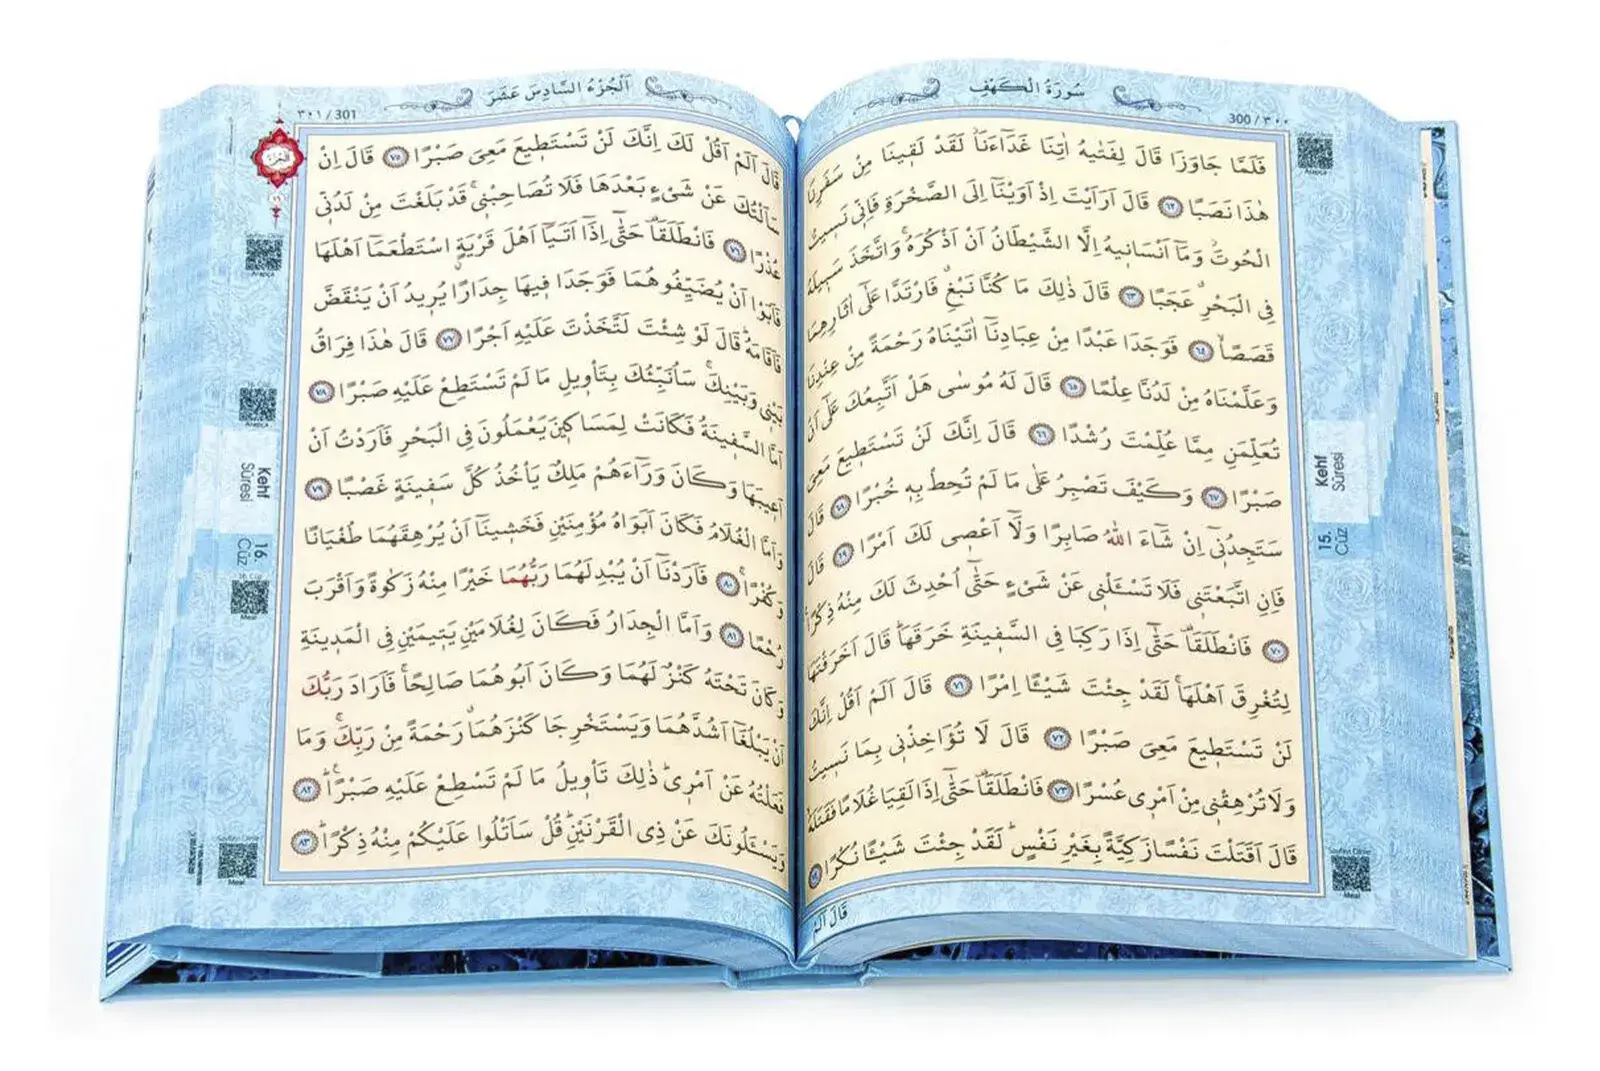 سُورَةُ الْكَهْفِ
300 / ٣٠٠
فَلَمَّا جَاوَزَا قَالَ لِفَتٰيهُ اٰتِنَا غَدَٓاءَنَاۘ لَقَدْ لَقٖينَا مِنْ سَفَرِنَا
هٰذَا نَصَبًا ﴿٦٢﴾ قَالَ اَرَاَيْتَ اِذْ اَوَيْنَٓا اِلَى الصَّخْرَةِ فَاِنّٖى نَسٖيتُ
الْحُوتَۘ وَمَٓا اَنْسَانٖيهُ اِلَّا الشَّيْطَانُ اَنْ اَذْكُرَهُۚ وَاتَّخَذَ سَبٖيلَهُ
فِى الْبَحْرِۗ عَجَبًا ﴿٦٣﴾ قَالَ ذٰلِكَ مَا كُنَّا نَبْغِۗ فَارْتَدَّا عَلٰٓى اٰثَارِهِمَا
قَصَصًاۙ ﴿٦٤﴾ فَوَجَدَا عَبْدًا مِنْ عِبَادِنَٓا اٰتَيْنَاهُ رَحْمَةً مِنْ عِنْدِنَا
وَعَلَّمْنَاهُ مِنْ لَدُنَّا عِلْمًا ﴿٦٥﴾ قَالَ لَهُ مُوسٰى هَلْ اَتَّبِعُكَ عَلٰٓى اَنْ
تُعَلِّمَنِ مِمَّا عُلِّمْتَ رُشْدًا ﴿٦٦﴾ قَالَ اِنَّكَ لَنْ تَسْتَطٖيعَ مَعِىَ
صَبْرًا ﴿٦٧﴾ وَكَيْفَ تَصْبِرُ عَلٰى مَا لَمْ تُحِطْ بِهٖ خُبْرًا ﴿٦٨﴾ قَالَ
سَتَجِدُنٖٓى اِنْ شَٓاءَ اللّٰهُ صَابِرًا وَلَٓا اَعْصٖى لَكَ اَمْرًا ﴿٦٩﴾ قَالَ
فَاِنِ اتَّبَعْتَنٖى فَلَا تَسْـَٔلْنٖى عَنْ شَىْءٍ حَتّٰٓى اُحْدِثَ لَكَ مِنْهُ ذِكْرًا
﴿٧٠﴾ فَانْطَلَقَا۠ حَتّٰٓى اِذَا رَكِبَا فِى السَّفٖينَةِ خَرَقَهَاۜ قَالَ اَخَرَقْتَهَا
لِتُغْرِقَ اَهْلَهَاۚ لَقَدْ جِئْتَ شَيْـًٔا اِمْرًا ﴿٧١﴾ قَالَ اَلَمْ اَقُلْ اِنَّكَ
لَنْ تَسْتَطٖيعَ مَعِىَ صَبْرًا ﴿٧٢﴾ قَالَ لَا تُؤَاخِذْنٖى بِمَا نَسٖيتُ
وَلَا تُرْهِقْنٖى مِنْ اَمْرٖى عُسْرًا ﴿٧٣﴾ فَانْطَلَقَا۠ حَتّٰٓى اِذَا لَقِيَا غُلَامًا فَقَتَلَهُۙ
قَالَ اَقَتَلْتَ نَفْسًا زَكِيَّةً بِغَيْرِ نَفْسٍۜ لَقَدْ جِئْتَ شَيْـًٔا نُكْرًا ﴿٧٤﴾
قَالَ اَلَمْ
Kehf
Sûresi
15.
Cüz
اَلْجُزْءُ السَّادِسَ عَشَرَ
٣٠١ / 301
قَالَ اَلَمْ اَقُلْ لَكَ اِنَّكَ لَنْ تَسْتَطٖيعَ مَعِىَ صَبْرًا ﴿٧٥﴾ قَالَ اِنْ
سَاَلْتُكَ عَنْ شَىْءٍ بَعْدَهَا فَلَا تُصَاحِبْنٖىۚ قَدْ بَلَغْتَ مِنْ لَدُنّٖى
عُذْرًا ﴿٧٦﴾ فَانْطَلَقَا۠ حَتّٰٓى اِذَٓا اَتَيَٓا اَهْلَ قَرْيَةٍۨ اسْتَطْعَمَٓا اَهْلَهَا
فَاَبَوْا اَنْ يُضَيِّفُوهُمَا فَوَجَدَا فٖيهَا جِدَارًا يُرٖيدُ اَنْ يَنْقَضَّ
فَاَقَامَهُۜ قَالَ لَوْ شِئْتَ لَتَّخَذْتَ عَلَيْهِ اَجْرًا ﴿٧٧﴾ قَالَ هٰذَا فِرَاقُ
بَيْنٖى وَبَيْنِكَۚ سَاُنَبِّئُكَ بِتَاْوٖيلِ مَا لَمْ تَسْتَطِعْ عَلَيْهِ صَبْرًا ﴿٧٨﴾
اَمَّا السَّفٖينَةُ فَكَانَتْ لِمَسَاكٖينَ يَعْمَلُونَ فِى الْبَحْرِ فَاَرَدْتُ اَنْ
اَعٖيبَهَا وَكَانَ وَرَٓاءَهُمْ مَلِكٌ يَاْخُذُ كُلَّ سَفٖينَةٍ غَصْبًا ﴿٧٩﴾
وَاَمَّا الْغُلَامُ فَكَانَ اَبَوَاهُ مُؤْمِنَيْنِ فَخَشٖينَٓا اَنْ يُرْهِقَهُمَا طُغْيَانًا
وَكُفْرًاۚ ﴿٨٠﴾ فَاَرَدْنَٓا اَنْ يُبْدِلَهُمَا رَبُّهُمَا خَيْرًا مِنْهُ زَكٰوةً وَاَقْرَبَ
رُحْمًا ﴿٨١﴾ وَاَمَّا الْجِدَارُ فَكَانَ لِغُلَامَيْنِ يَتٖيمَيْنِ فِى الْمَدٖينَةِ
وَكَانَ تَحْتَهُ كَنْزٌ لَهُمَا وَكَانَ اَبُوهُمَا صَالِحًاۚ فَاَرَادَ رَبُّكَ
اَنْ يَبْلُغَٓا اَشُدَّهُمَا وَيَسْتَخْرِجَا كَنْزَهُمَاۗ رَحْمَةً مِنْ رَبِّكَۚ وَمَا
فَعَلْتُهُ عَنْ اَمْرٖىۜ ذٰلِكَ تَاْوٖيلُ مَا لَمْ تَسْطِعْ عَلَيْهِ صَبْرًاۜ ﴿٨٢﴾
وَيَسْـَٔلُونَكَ عَنْ ذِى الْقَرْنَيْنِۜ قُلْ سَاَتْلُوا عَلَيْكُمْ مِنْهُ ذِكْرًاۜ ﴿٨٣﴾
Kehf
Sûresi
16.
Cüz